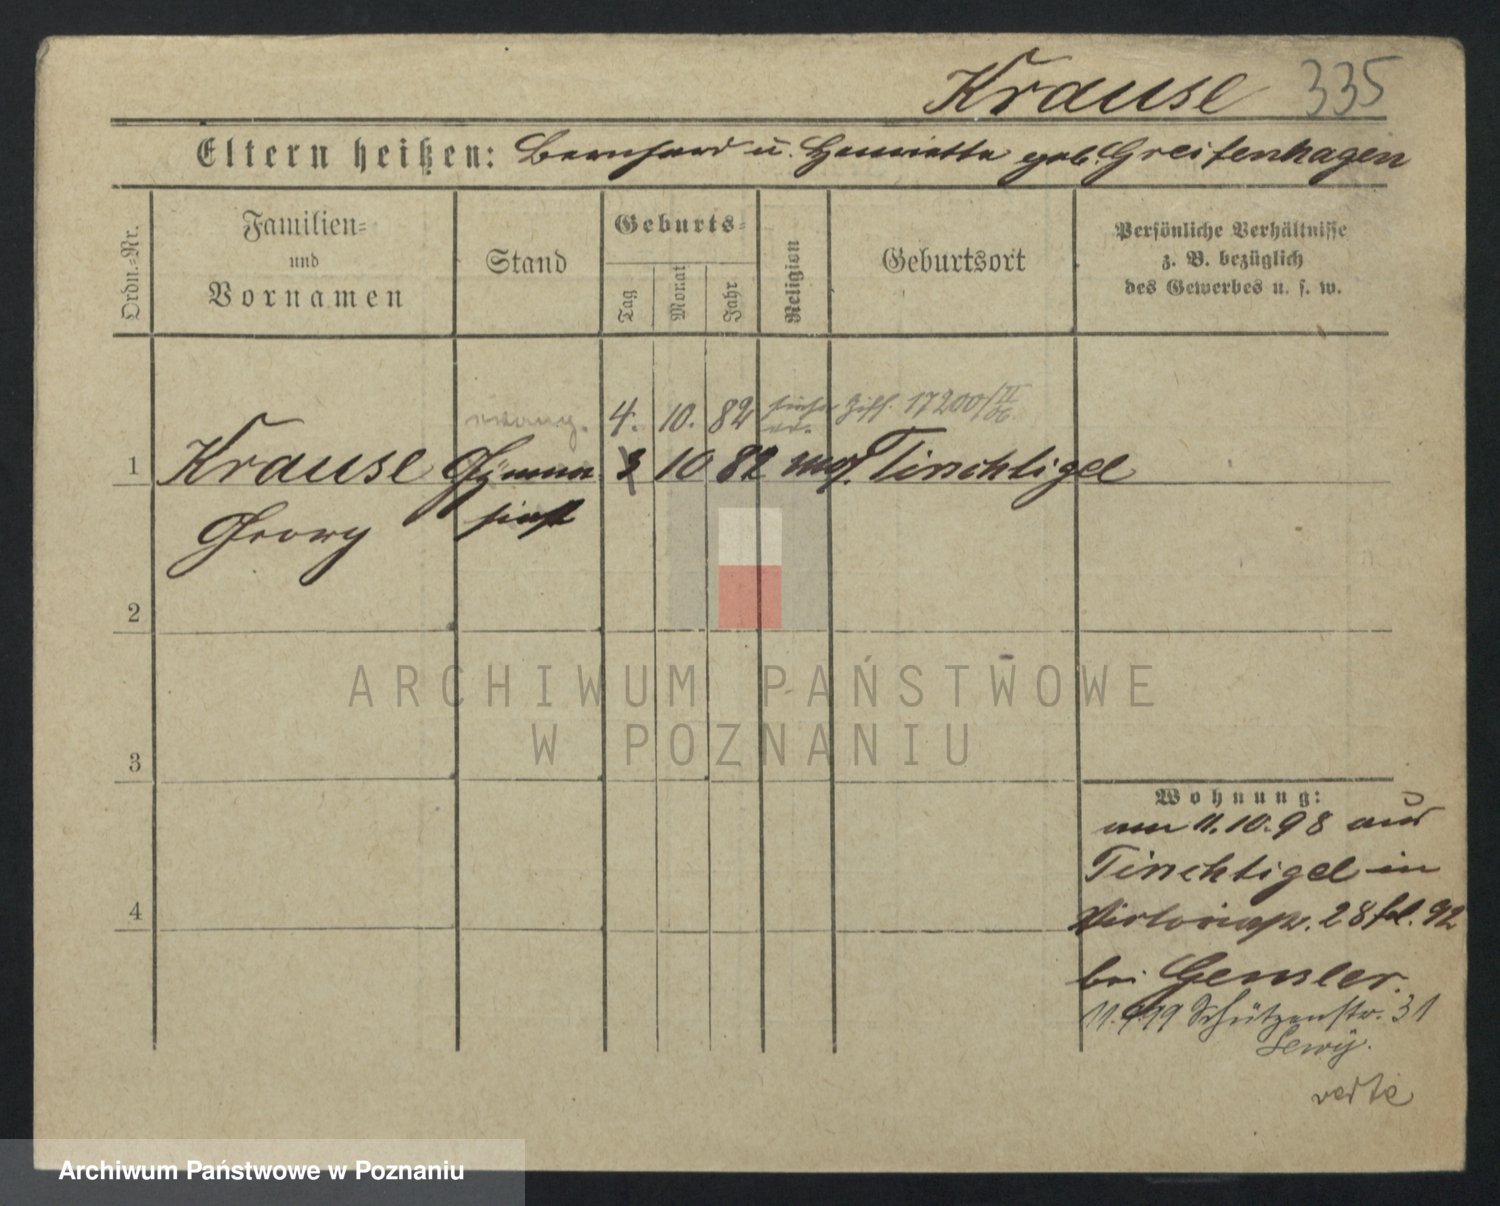 Krause 335
Eltern heißen: Bernhard u. Henriette geb. Greifenhagen
Ordn.-Nr.
Familien-
und
Vornamen
Stand
Geburts-
Tag
Monat
Jahr
Religion
Geburtsort
Persönliche Verhältnisse
z. B. bezüglich
des Gewerbes u. s. w.
4. 10. 82 siehe Ziff. 17200/II
1 Krause Gymna 3 10 82 mos. Tirschtigel
Georg siast
2
ARCHIWUM PAŃSTWOWE
W POZNANIU
3
Wohnung:
am 11.10.98 aus
4 Tirschtigel in
Victoriastr. 28 fol. 92
bei Gensler.
11.4.99 Schützenstr. 31
Lewy.
verte
Archiwum Państwowe w Poznaniu